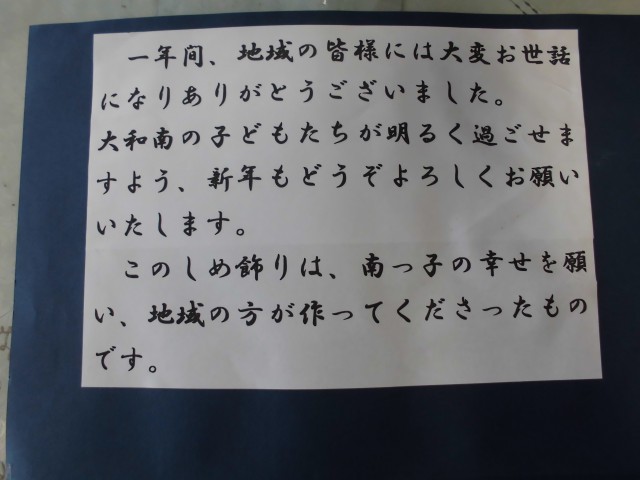 一年間、地域の皆様には大変お世話
になりありがとうございました。
大和南の子どもたちが明るく過ごせま
すよう、新年もどうぞよろしくお願い
いたします。
このしめ飾りは、南っ子の幸せを願
い、地域の方が作ってくださったもの
です。